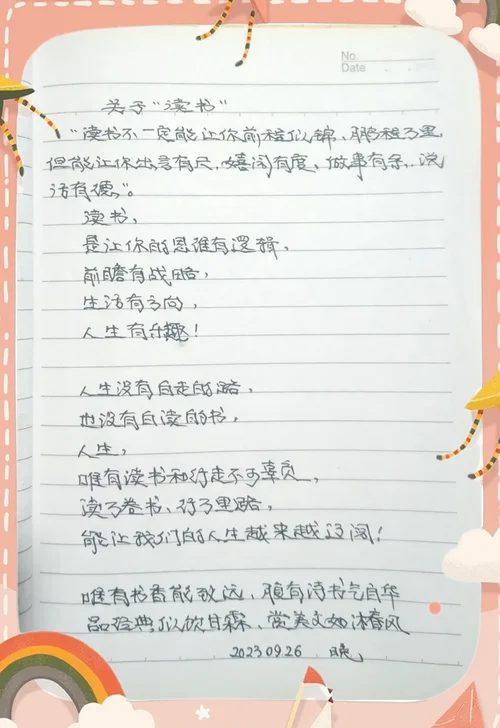 No.
Date
关于“读书”
“读书不一定能让你前程似锦、鹏程万里,
但能让你出言有尺,嬉闹有度,做事有余,说
话有德”。
读书,
是让你的思维有逻辑,
前瞻有战略,
生活有方向,
人生有乐趣!
人生没有白走的路,
也没有白读的书,
人生,
唯有读书和行走不可辜负,
读万卷书、行万里路,
能让我们的人生越来越辽阔!
唯有书香能致远、腹有诗书气自华
品经典似饮甘霖、赏美文如沐春风
2023.09.26 晓